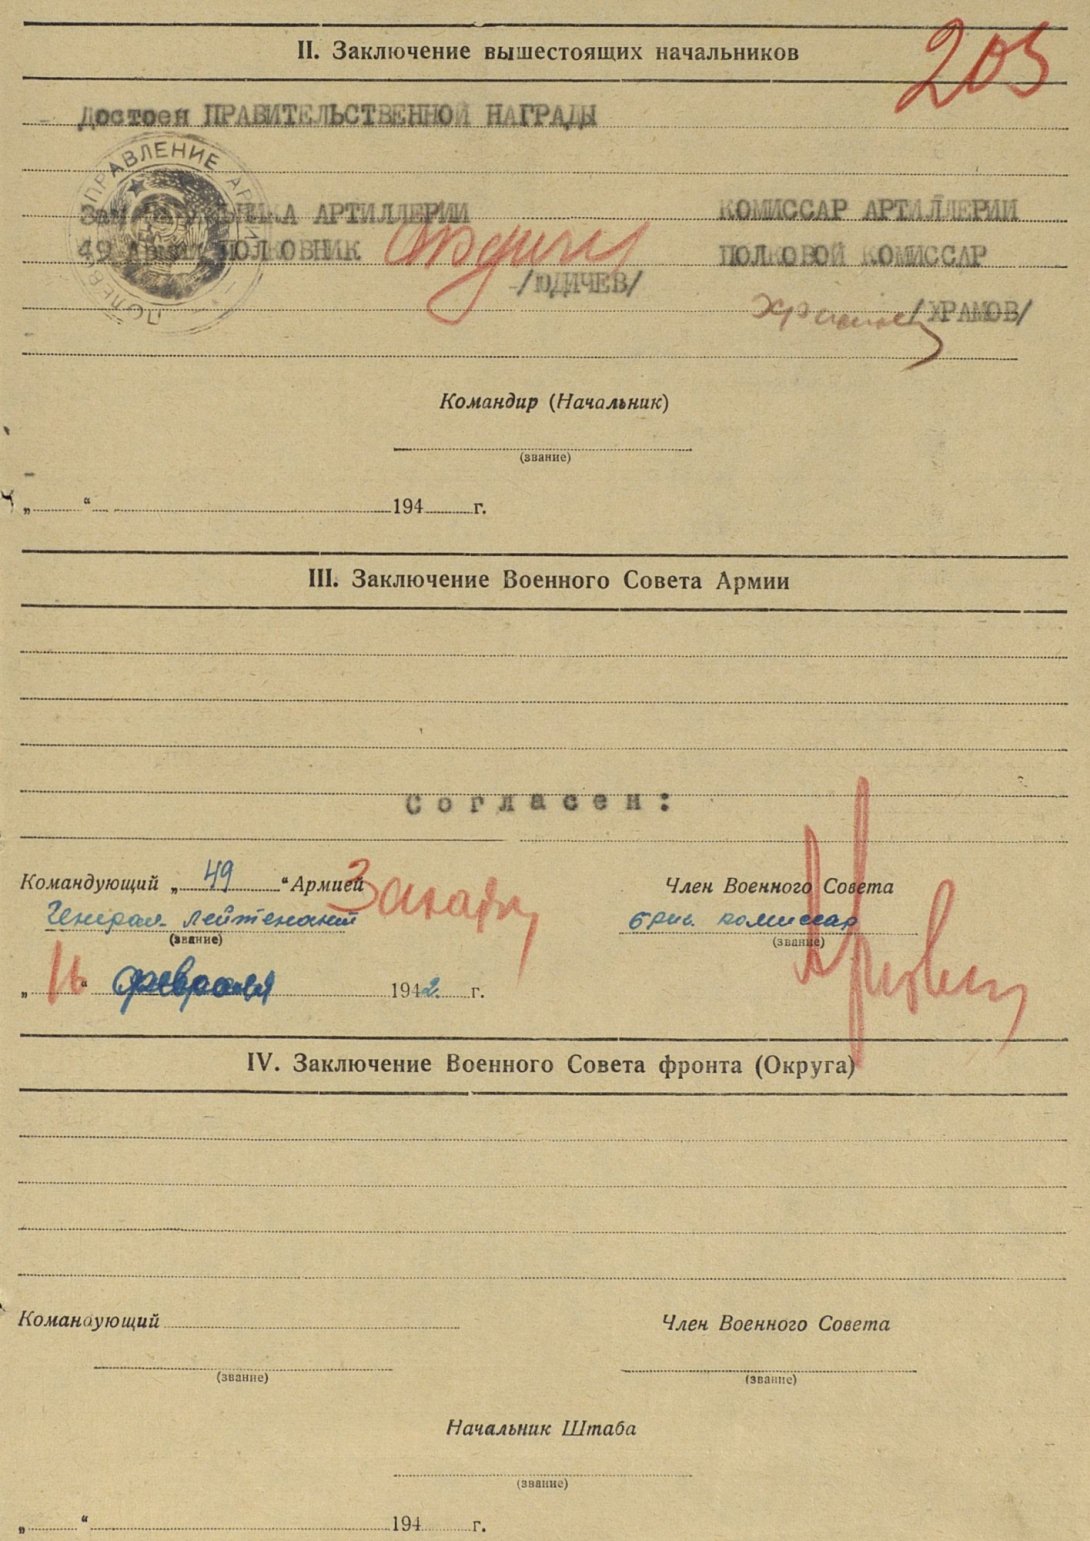 203
II. Заключение вышестоящих начальников
Достоен ПРАВИТЕЛЬСТВЕННОЙ НАГРАДЫ
ПОЛЕВОЕ УПРАВЛЕНИЕ АРМИИ
Зам НАЧАЛЬНИКА АРТИЛЛЕРИИ КОМИССАР АРТИЛЛЕРИИ
49 АРМИИ ПОЛКОВНИК ПОЛКОВОЙ КОМИССАР
/ЮДИЧЕВ/
/ХРАМОВ/
Командир (Начальник)
(звание)
„ “ 194 г.
III. Заключение Военного Совета Армии
Согласен:
Командующий „ 49 “ Армией Член Военного Совета
Генерал-лейтенант бриг. комиссар
(звание) (звание)
„ 16 “ февраля 1942 г.
IV. Заключение Военного Совета фронта (Округа)
Командующий Член Военного Совета
(звание) (звание)
Начальник Штаба
(звание)
„ “ 194 г.